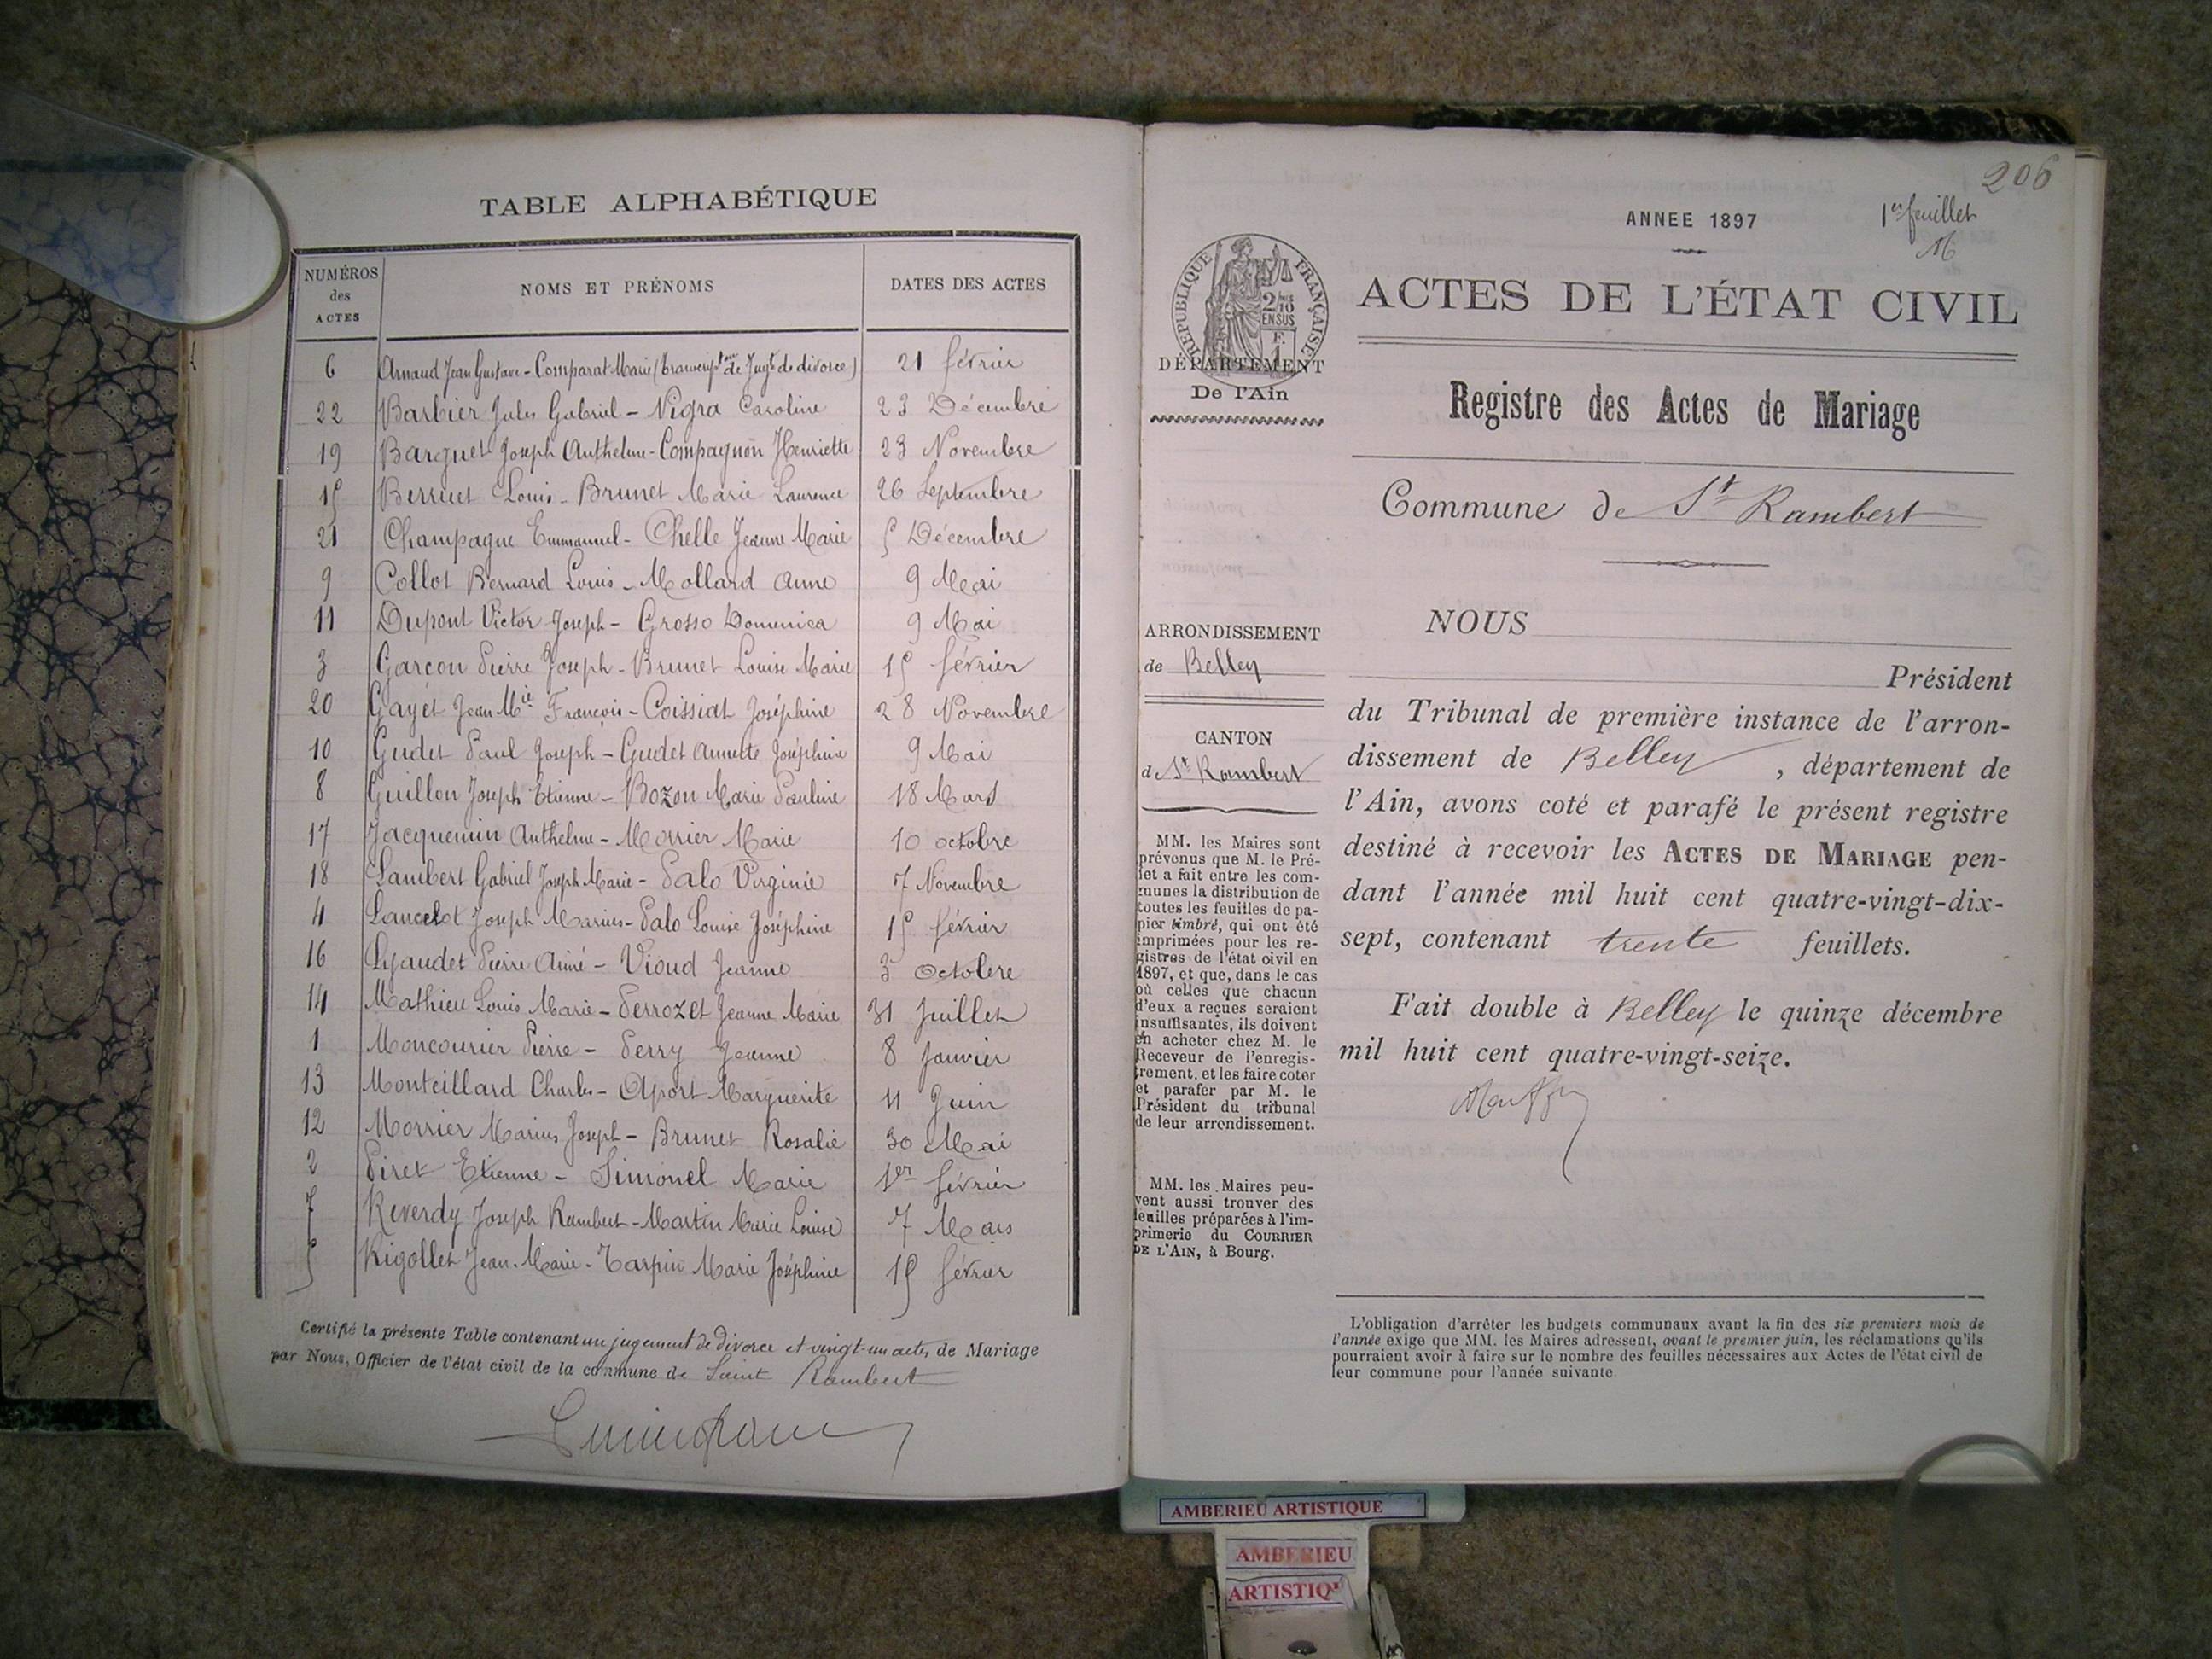 TABLE ALPHABÉTIQUE
NUMÉROS des ACTES NOMS ET PRÉNOMS DATES DES ACTES
6 Arnaud Jean Gustave - Comparat Marie (transcript.on de Jugt de divorce) 21 février
22 Barbier Jules Gabriel - Nigra Caroline 23 Décembre
19 Barquet Joseph Anthelme - Compagnon Henriette 23 Novembre
15 Berruet Louis - Brunet Marie Laurence 26 Septembre
21 Champagne Emmanuel - Chelle Jeanne Marie 5 Décembre
9 Collot Bernard Louis - Mollard Anne 9 Mai
11 Dupont Victor Joseph - Grosso Domenica 9 Mai
3 Garçon Pierre Joseph - Brunet Louise Marie 15 février
20 Gayet Jean Mie François - Coissiat Joséphine 28 Novembre
10 Gudet Paul Joseph - Gudet Annette Joséphine 9 Mai
8 Guillon Joseph Etienne - Bozon Marie Pauline 18 Mars
17 Jacquemin Anthelme - Morrier Marie 10 octobre
18 Lambert Gabriel Joseph Marie - Palo Virginie 7 Novembre
4 Lancelot Joseph Marius - Palo Louise Joséphine 15 février
16 Lyaudet Pierre Aimé - Vioud Jeanne 3 Octobre
14 Mathieu Louis Marie - Perrozet Jeanne Marie 31 Juillet
1 Moncourier Pierre - Perry Jeanne 8 Janvier
13 Monteillard Charles - Aport Marguerite 11 Juin
12 Morrier Marius Joseph - Brunet Rosalie 30 Mai
2 Piret Etienne - Simonel Marie 1er février
7 Reverdy Joseph Rambert - Martin Marie Louise 7 Mars
5 Rigollet Jean-Marie - Tarpin Marie Joséphine 15 février
Certifié la présente Table contenant un jugement de divorce et vingt-un actes de Mariage
par Nous, Officier de l'état civil de la commune de Saint Rambert
206
1er feuillet
ANNEE 1897
RÉPUBLIQUE FRANÇAISE
2/10 EN SUS
F. 1
ACTES DE L'ÉTAT CIVIL
DÉPARTEMENT
De l'Ain
Registre des Actes de Mariage
Commune de St Rambert
ARRONDISSEMENT
de Belley
CANTON
de St Rambert
MM. les Maires sont
prévenus que M. le Pré-
fet a fait entre les com-
munes la distribution de
toutes les feuilles de pa-
pier timbré, qui ont été
imprimées pour les re-
gistres de l'état civil en
1897, et que, dans le cas
où celles que chacun
d'eux a reçues seraient
insuffisantes, ils doivent
en acheter chez M. le
Receveur de l'enregis-
trement, et les faire coter
et parafer par M. le
Président du tribunal
de leur arrondissement.
MM. les Maires peu-
vent aussi trouver des
feuilles préparées à l'im-
primerie du COURRIER
DE L'AIN, à Bourg.
NOUS
Président
du Tribunal de première instance de l'arron-
dissement de Belley, département de
l'Ain, avons coté et parafé le présent registre
destiné à recevoir les ACTES DE MARIAGE pen-
dant l'année mil huit cent quatre-vingt-dix-
sept, contenant trente feuillets.
Fait double à Belley le quinze décembre
mil huit cent quatre-vingt-seize.
L'obligation d'arrêter les budgets communaux avant la fin des six premiers mois de
l'année exige que MM. les Maires adressent, avant le premier juin, les réclamations qu'ils
pourraient avoir à faire sur le nombre des feuilles nécessaires aux Actes de l'état civil de
leur commune pour l'année suivante.
AMBERIEU ARTISTIQUE
AMBERIEU
ARTISTIQ